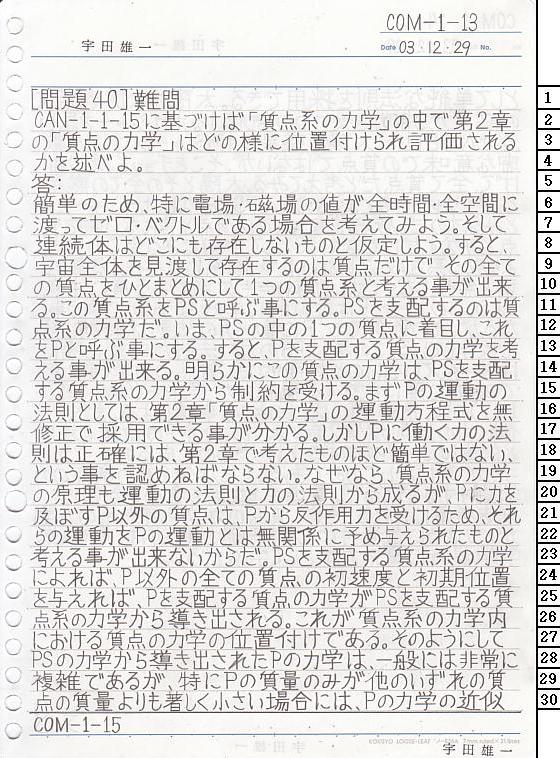 COM-1-13
宇田雄一
Date 03・12・29 No.
[問題40]難問
CAN-1-1-15に基づけば「質点系の力学」の中で第2章
の「質点の力学」はどの様に位置付けられ評価される
かを述べよ。
答:
簡単のため、特に電場・磁場の値が全時間・全空間に
渡ってゼロ・ベクトルである場合を考えてみよう。そして
連続体はどこにも存在しないものと仮定しよう。すると、
宇宙全体を見渡して存在するのは質点だけで、その全て
の質点をひとまとめにして1つの質点系と考える事が出来
る。この質点系をPSと呼ぶ事にする。PSを支配するのは質
点系の力学だ。いま、PSの中の1つの質点に着目し、これ
をPと呼ぶ事にする。すると、Pを支配する質点の力学を考
える事が出来る。明らかにこの質点の力学は、PSを支配
する質点系の力学から制約を受ける。まずPの運動の
法則としては、第2章「質点の力学」の運動方程式を無
修正で採用できる事が分かる。しかしPに働く力の法
則は正確には、第2章で考えたものほど簡単ではない、
という事を認めねばならない。なぜなら、質点系の力学
の原理も運動の法則と力の法則から成るが、Pに力を
及ぼすP以外の質点は、Pから反作用力を受けるため、それ
らの運動をPの運動とは無関係に予め与えられたものと
考える事が出来ないからだ。PSを支配する質点系の力学
によれば、P以外の全ての質点の初速度と初期位置
を与えれば、Pを支配する質点の力学がPSを支配する質
点系の力学から導き出される。これが質点系の力学内
における質点の力学の位置付けである。そのようにして
PSの力学から導き出されたPの力学は、一般には非常に
複雑であるが、特にPの質量のみが他のいずれの質
点の質量よりも著しく小さい場合には、Pの力学の近似
COM-1-15
宇田雄一
1
2
3
4
5
6
7
8
9
10
11
12
13
14
15
16
17
18
19
20
21
22
23
24
25
26
27
28
29
30